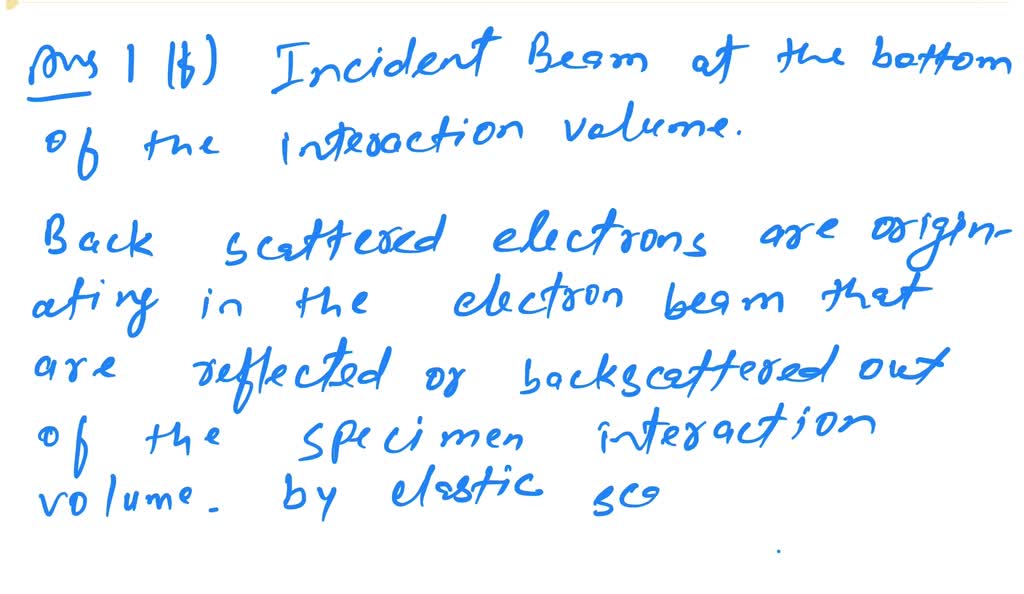 Ans 1 (b) Incident Beam at the bottom
of the interaction volume.
Back scattered electrons are origin-
ating in the electron beam that
are reflected or backscattered out
of the specimen interaction
volume. by elastic sca